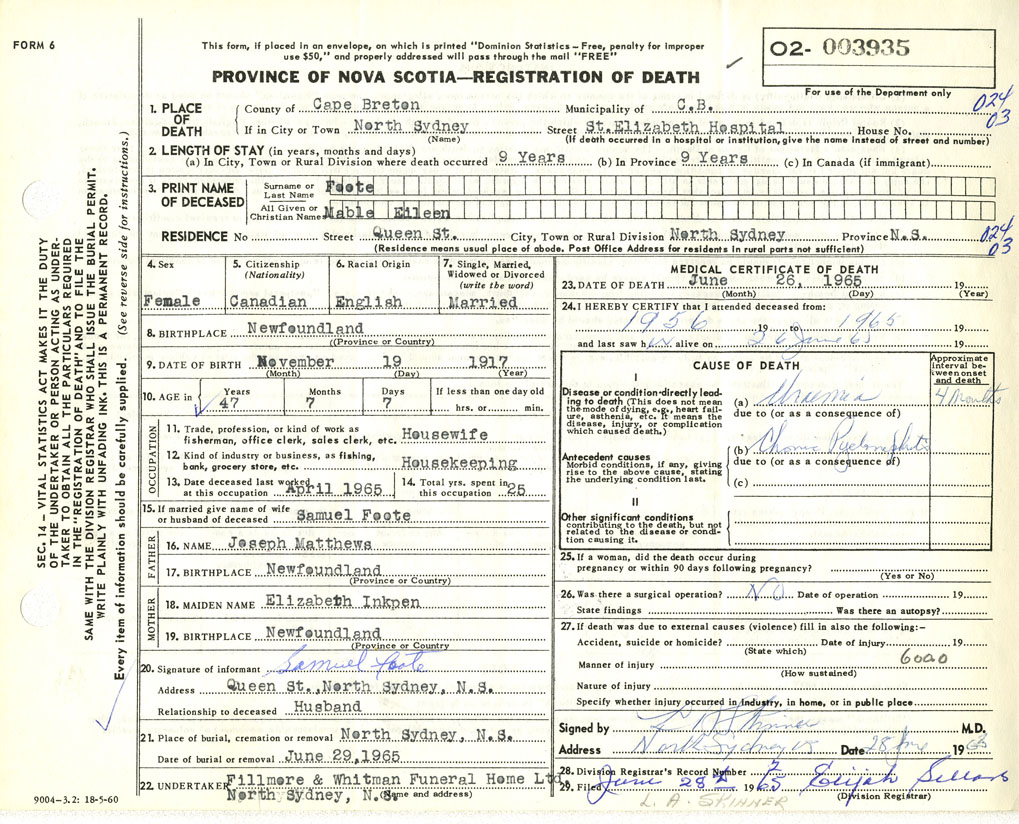 FORM 6
This form, if placed in an envelope, on which is printed "Dominion Statistics – Free, penalty for improper
use $50," and properly addressed will pass through the mail "FREE"
PROVINCE OF NOVA SCOTIA—REGISTRATION OF DEATH
O2- 003935
For use of the Department only
024
03
1. PLACE OF DEATH
County of Cape Breton Municipality of C.B.
If in City or Town North Sydney Street St.Elizabeth Hospital House No.
(Name) (If death occurred in a hospital or institution, give the name instead of street and number)
2. LENGTH OF STAY (in years, months and days)
(a) In City, Town or Rural Division where death occurred 9 Years (b) In Province 9 Years (c) In Canada (if immigrant)
3. PRINT NAME OF DECEASED
Surname or Last Name Foote
All Given or Christian Names Mable Eileen
RESIDENCE No Street Queen St. City, Town or Rural Division North Sydney Province N.S.
(Residence means usual place of abode. Post Office Address for residents in rural parts not sufficient)
024
03
4. Sex
Female
5. Citizenship
(Nationality)
Canadian
6. Racial Origin
English
7. Single, Married,
Widowed or Divorced
(write the word)
Married
8. BIRTHPLACE Newfoundland
(Province or Country)
9. DATE OF BIRTH November 19 1917
(Month) (Day) (Year)
10. AGE in
Years Months Days If less than one day old
47 7 7 hrs. or min.
OCCUPATION
11. Trade, profession, or kind of work as
fisherman, office clerk, sales clerk, etc. Housewife
12. Kind of industry or business, as fishing,
bank, grocery store, etc. Housekeeping
13. Date deceased last worked
at this occupation April 1965
14. Total yrs. spent in
this occupation 25
15. If married give name of wife
or husband of deceased Samuel Foote
FATHER
16. NAME Joseph Matthews
17. BIRTHPLACE Newfoundland
(Province or Country)
MOTHER
18. MAIDEN NAME Elizabeth Inkpen
19. BIRTHPLACE Newfoundland
(Province or Country)
20. Signature of informant Samuel Foote
Address Queen St.,North Sydney, N.S.
Relationship to deceased Husband
21. Place of burial, cremation or removal North Sydney, N.S.
Date of burial or removal June 29,1965
22. UNDERTAKER Fillmore & Whitman Funeral Home Ltd.
North Sydney, N.S. (Name and address)
MEDICAL CERTIFICATE OF DEATH
23. DATE OF DEATH June 26, 1965 19
(Month) (Day) (Year)
24. I HEREBY CERTIFY that I attended deceased from:
1956 19 to 1965 19
and last saw her alive on 26 June 65 19
CAUSE OF DEATH
Approximate
interval be-
tween onset
and death
I
Disease or condition directly lead-
ing to death (This does not mean
the mode of dying, e.g., heart fail-
ure, asthenia, etc. It means the
disease, injury, or complication
which caused death.)
(a) Uraemia 4 Months
due to (or as a consequence of)
Antecedent causes
Morbid conditions, if any, giving
rise to the above cause, stating
the underlying condition last.
(b) Chronic Pyelonephritis
due to (or as a consequence of)
(c)
II
Other significant conditions
contributing to the death, but not
related to the disease or condi-
tion causing it.
25. If a woman, did the death occur during
pregnancy or within 90 days following pregnancy?
(Yes or No)
26. Was there a surgical operation? NO Date of operation 19
State findings Was there an autopsy?
27. If death was due to external causes (violence) fill in also the following:–
Accident, suicide or homicide? Date of injury 19
(State which)
Manner of injury 6000
(How sustained)
Nature of injury
Specify whether injury occurred in industry, in home, or in public place
Signed by L A Skinner M.D.
Address North Sydney NS Date 28 June 1965
28. Division Registrar's Record Number 7
29. Filed June 28th 1965 Elijah Sellars
(Division Registrar)
L. A. SKINNER
SEC. 14 – VITAL STATISTICS ACT MAKES IT THE DUTY
OF THE UNDERTAKER OR PERSON ACTING AS UNDER-
TAKER TO OBTAIN ALL THE PARTICULARS REQUIRED
IN THE "REGISTRATION OF DEATH" AND TO FILE THE
SAME WITH THE DIVISION REGISTRAR WHO SHALL ISSUE THE BURIAL PERMIT.
WRITE PLAINLY WITH UNFADING INK. THIS IS A PERMANENT RECORD.
Every item of information should be carefully supplied. (See reverse side for instructions.)
9004-3.2: 18-5-60